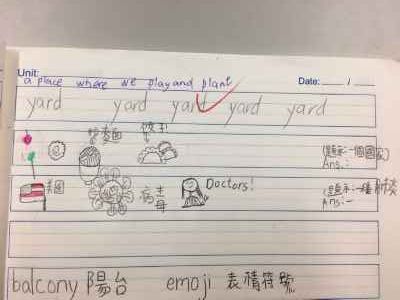 Unit: Date: /
a place where we play and plant
yard yard yard yard yard
餃子 (提示:一個國家)
Ans.:
美國 病毒 Doctors! (提示:一種肺炎
Ans.:
balcony 陽台 emoji 表情符號